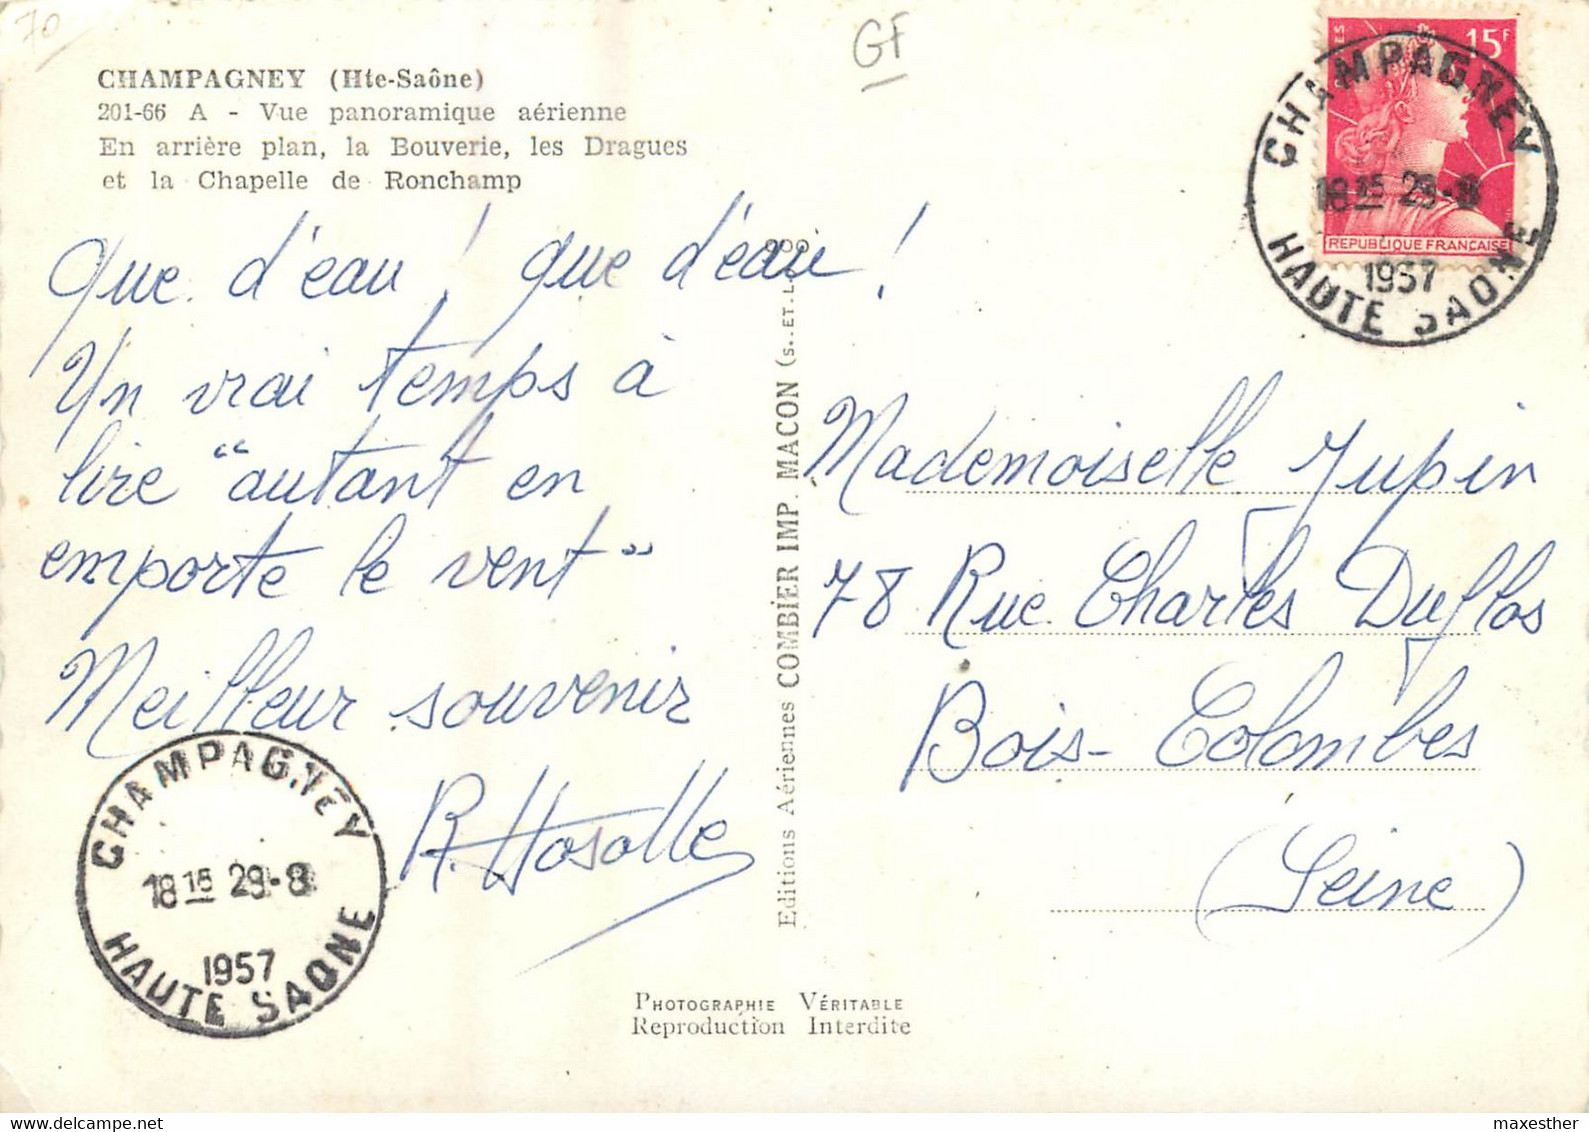 70
GF
CHAMPAGNEY (Hte-Saône)
201-66 A - Vue panoramique aérienne
En arrière plan, la Bouverie, les Dragues
et la Chapelle de Ronchamp
Que d'eau ! que d'eau !
Un vrai temps à
lire "autant en
emporte le vent"
Meilleur souvenir
R.
CHAMPAGNEY
18 15 29-8
1957
HAUTE SAONE
Editions Aériennes COMBIER IMP. MACON (S.-ET-L.)
15F
REPUBLIQUE FRANÇAISE
CHAMPAGNEY
18 15 29-8
1957
HAUTE SAONE
Mademoiselle Jupin
78 Rue Charles Duflos
Bois-Colombes
(Seine)
PHOTOGRAPHIE VÉRITABLE
Reproduction Interdite
maxesther